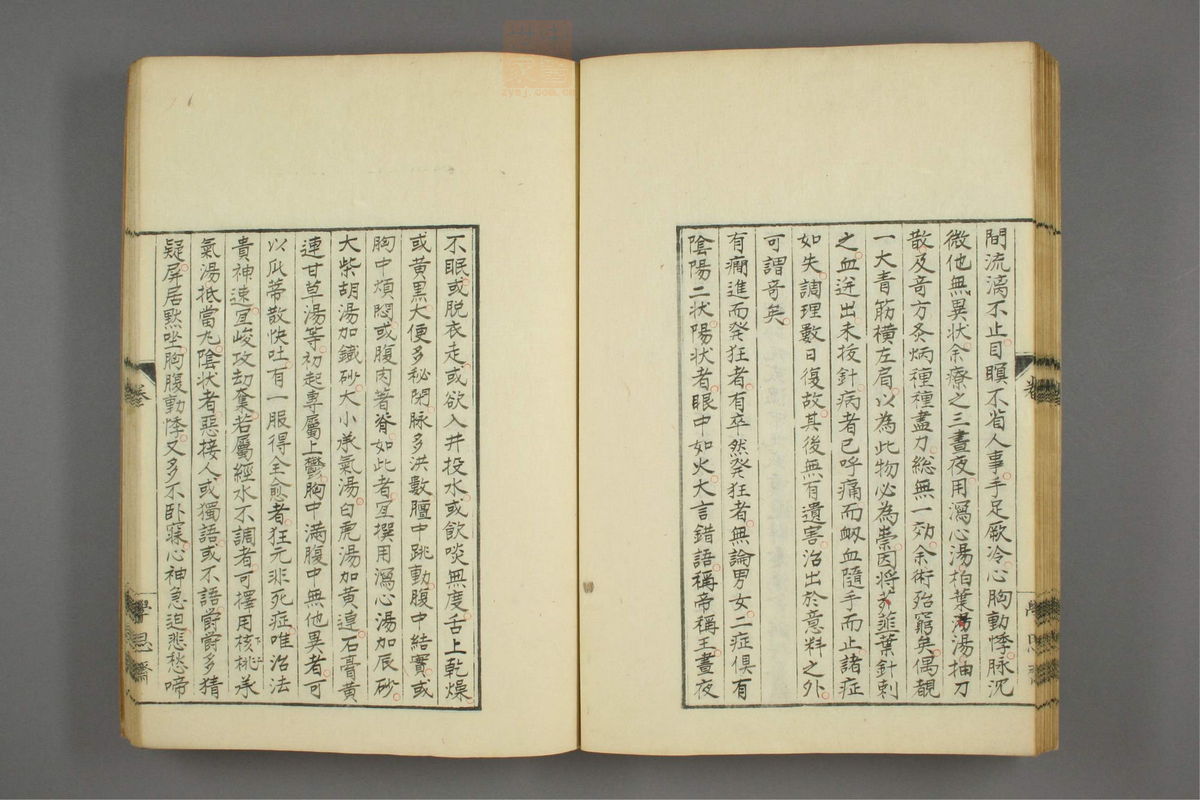 間流漓不止目瞑不省人事手足厥冷心胸動悸脉沉
微他無異状余療之三晝夜用瀉心湯柏葉湯湯抽刀
散及奇方灸焫種種盡力総無一効余術殆窮矣偶覩
一大青筋横左肩以為此物必為祟因将韮葉針刺
之血迸出未抜針病者已呼痛而衂血隨手而止諸症
如失調理數日復故其後無有遺害治出於意料之外
可謂奇矣
有癇進而発狂者有卒然発狂者無論男女二症倶有
陰陽二状陽状者眼中如火大言錯語稱帝稱王晝夜
不眠或脱衣走或欲入井投水或飲啖無度舌上乾燥
或黄黒大便多秘閉脉多洪數膻中跳動腹中結實或
胸中煩悶或腹肉著脊如此者宜撰用瀉心湯加辰砂
大柴胡湯加鐵砂大小承氣湯白虎湯加黄連石膏黄
連甘草湯等初起專屬上鬱胸中満腹中無他異者可
以瓜蒂散快吐有一服得全愈者狂元非死症唯治法
貴神速宜峻攻劫奪若屬經水不調者可擇用桃核承
氣湯抵當丸陰状者惡接人或獨語或不語欝欝多猜
疑屏居黙坐胸腹動悸又多不卧寐心神急迫悲愁啼
卷
學思齋